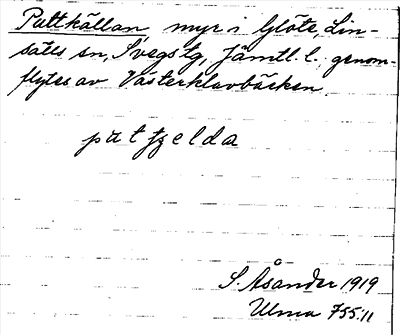 Puttkällan myr i Glöte, Lin-
sälls sn, Svegs tg, Jämtl. l., genom-
flytes av Västerklavbäcken.
S. Åsander 1919
Ulma 755:11